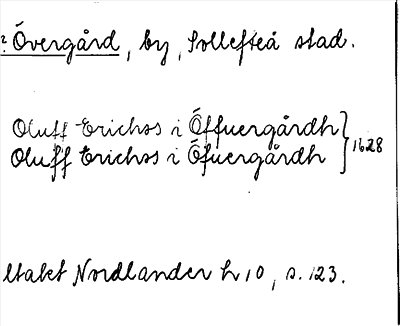 ? Övergård, by, Sollefteå stad.
Oluff Erichos i Öffuergårdh } 1628
Oluff Erichos i Öfuergårdh
ltaket Nordlander h 10, s. 123.